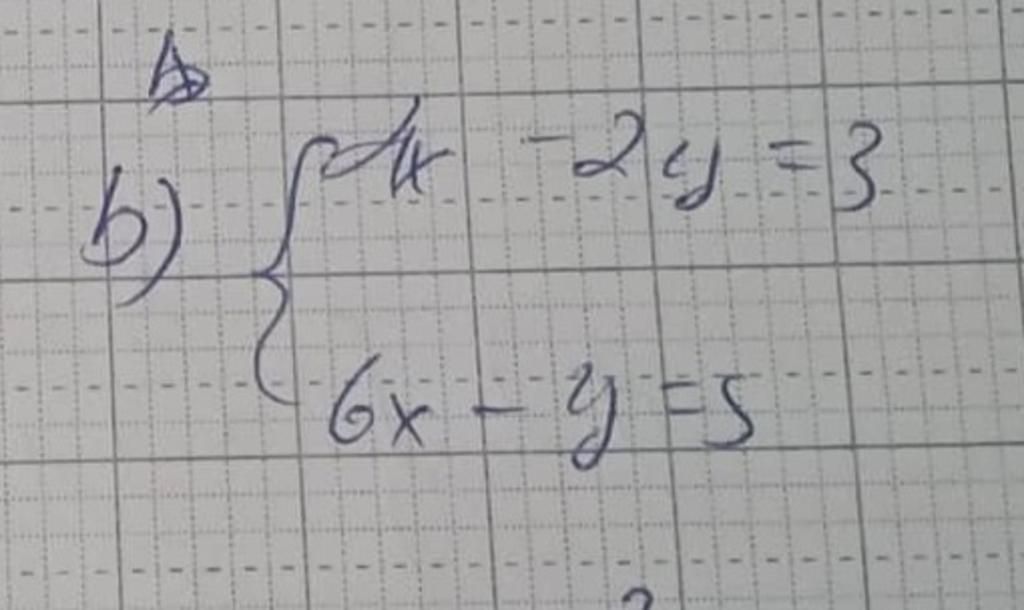 b) { 4x - 2y = 3
6x - y = 5